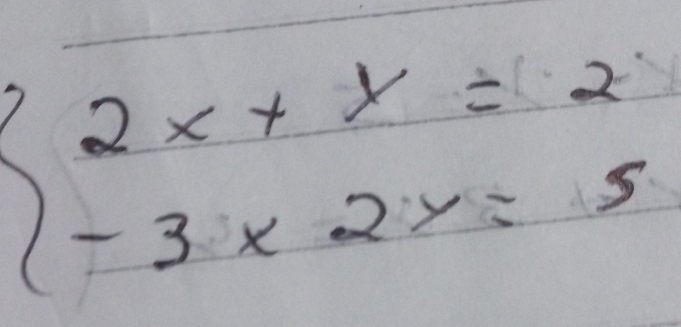 2x + y = 2
- 3x 2y = 5